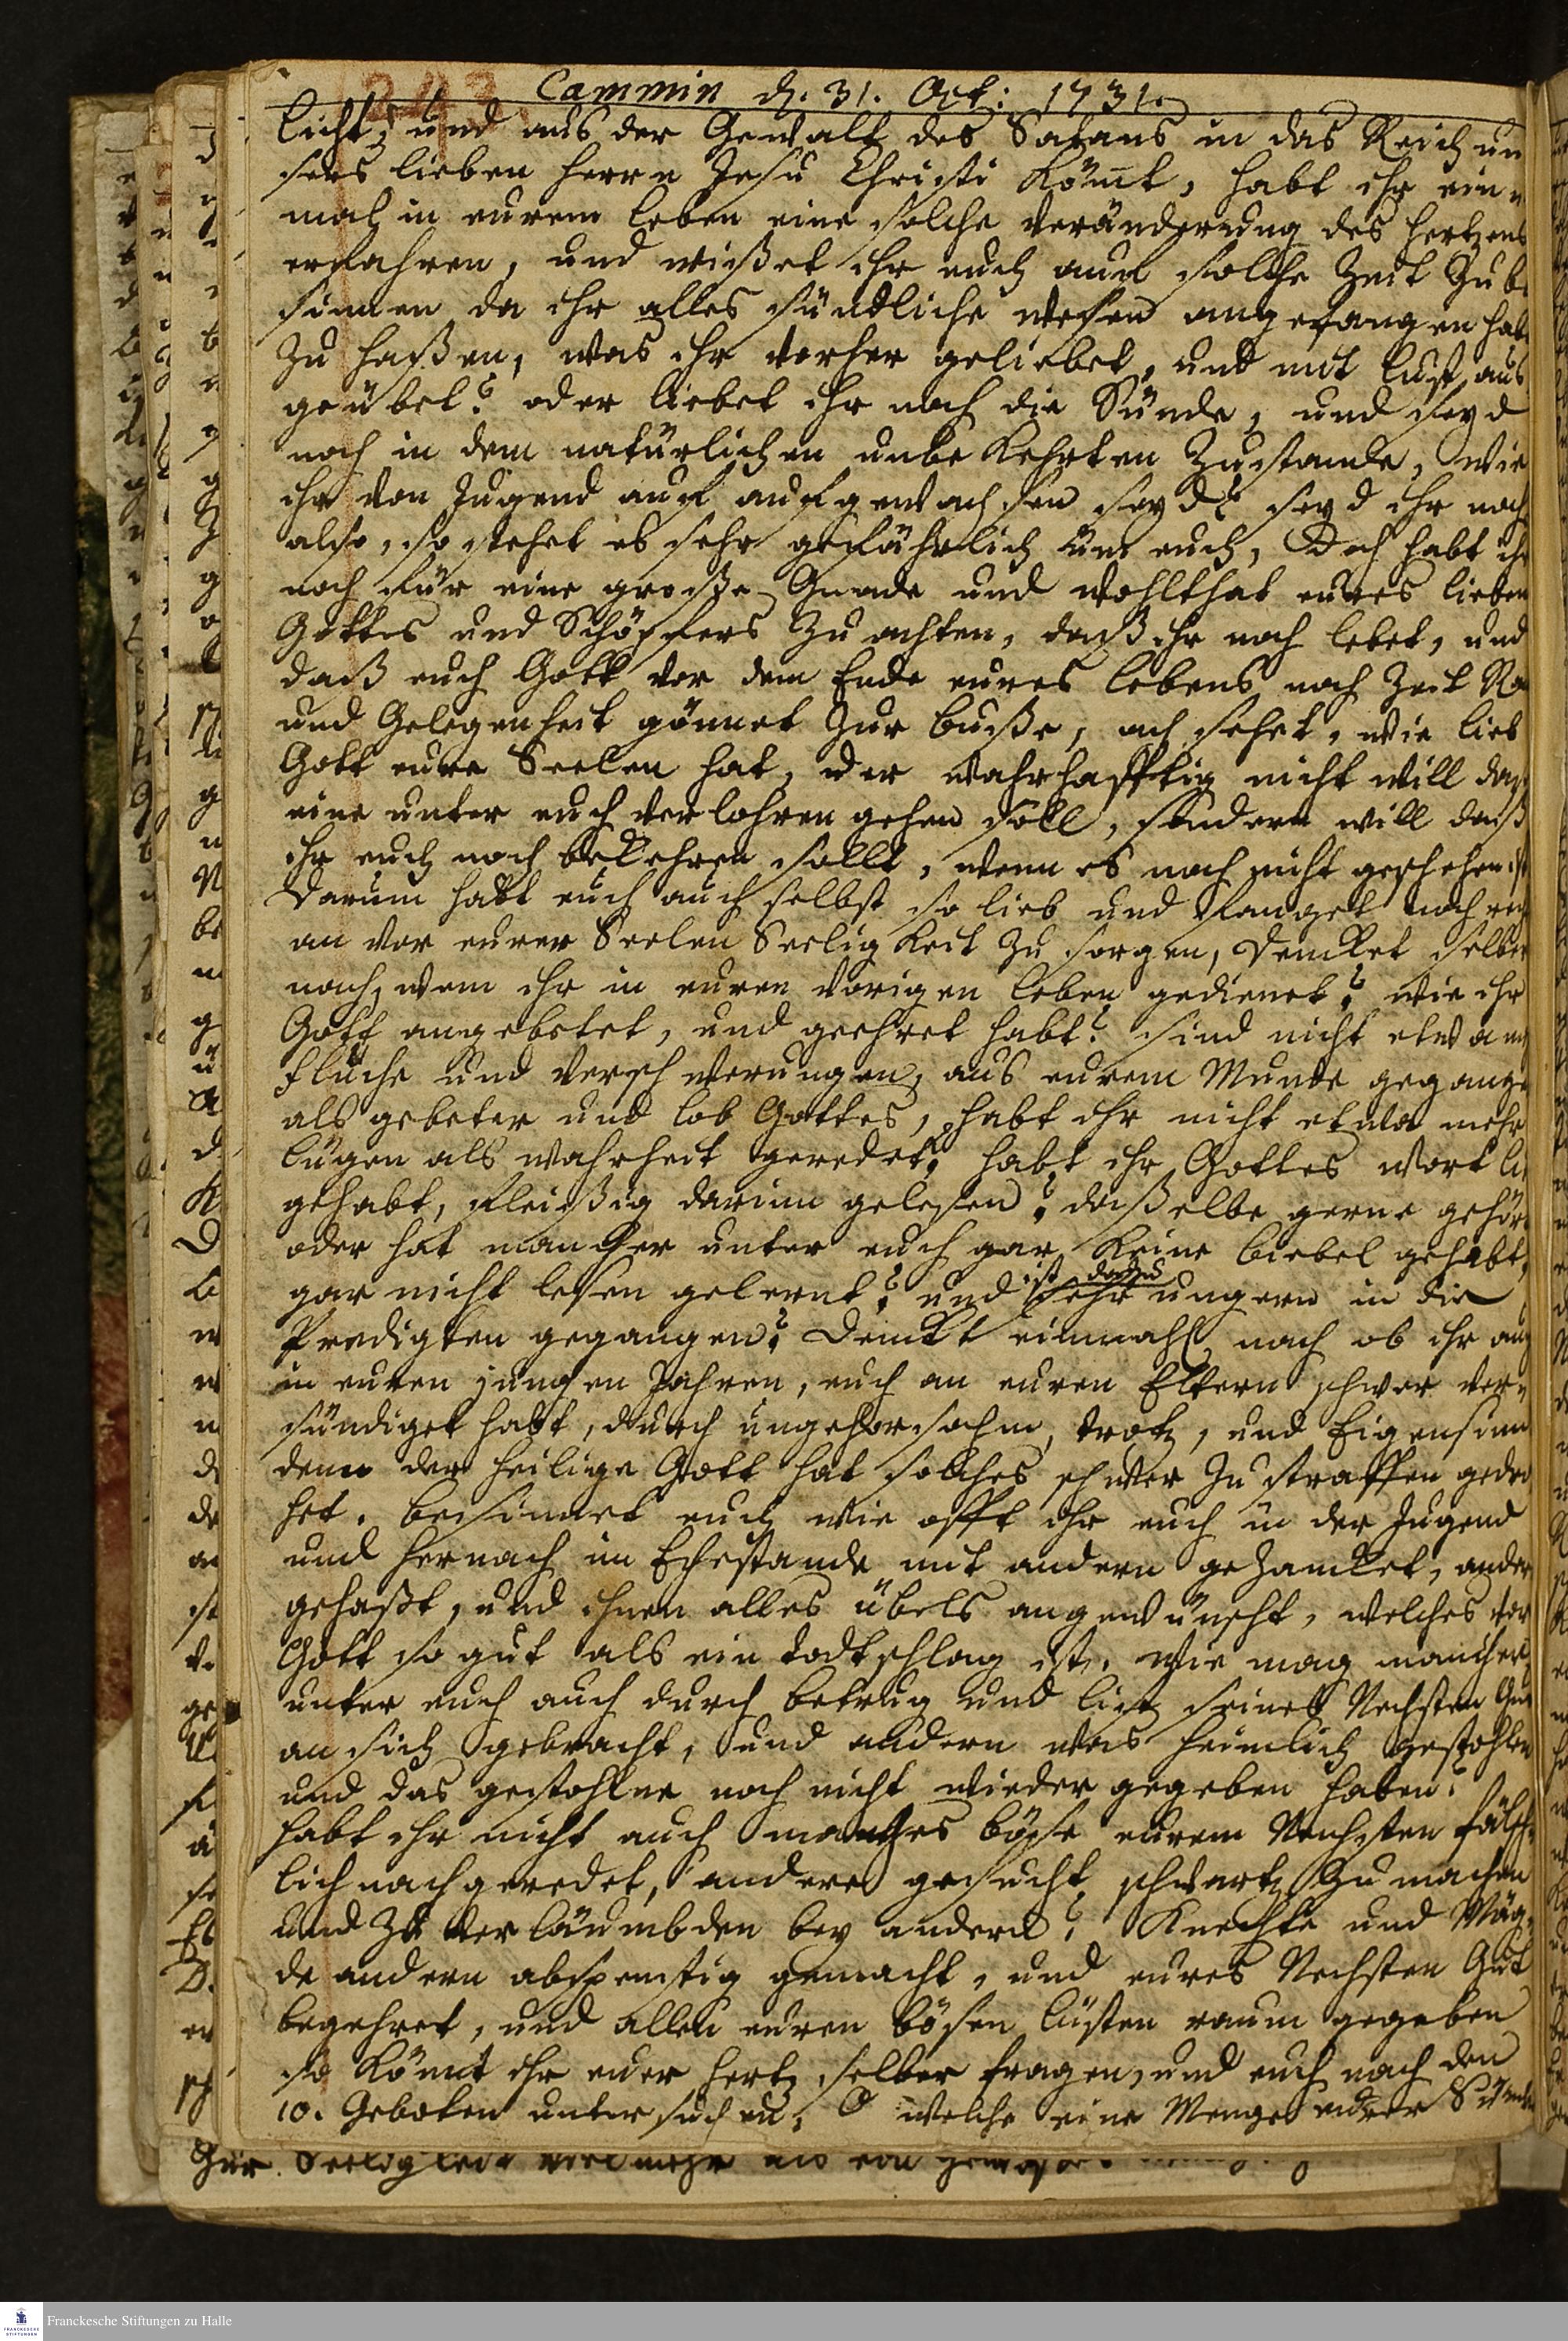 Cammin d. 31. Oct: 1731.
licht, und aus der Gewalt des Satans in das Reich un
sers lieben Herrn Jesu Christi kömt, habt ihr ein
mal in eurem leben eine solche veränderung des Hertzens
erfahren, und wißet ihr euch auf solche Zeit zu be
sinnen da ihr alles sündliche wesen angefangen habt
zu haßen, was ihr vorher geliebet, und mit lust aus
geübet? oder liebet ihr noch die Sünde, und seyd
noch in dem natürlichen unbekehrten Zustande, wie
ihr von Jugend auf aufgewachsen seyd? seyd ihr noch
also, so stehet es sehr gefährlich um euch, Doch habt ihr
noch für eine große Gnade und wohlthat eures lieben
Gottes und Schöpfers zu achten, daß ihr noch lebet, und
daß euch Gott vor dem Ende eures lebens noch Zeit
und Gelegenheit gönnet zur buße, ach sehet, wie lieb
Gott eure Seelen hat, der wahrhafftig nicht will daß
eine unter euch verlohren gehen soll, sondern will daß
ihr euch noch bekehren sollt, wenn es noch nicht geschehen ist
Darum habt euch auch selbst so lieb und fanget noch
an vor eurer Seelen Seeligkeit zu sorgen, Dencket selber
nach, wem ihr in euren vorigen leben gedienet? wie ihr
Gott angebetet, und geehret habt? sind nicht etwa
flüche und verschwerungen, aus eurem Munde gegangen
als gebeter und lob Gottes, habt ihr nicht etwa mehr
lügen als wahrheit geredet? habt ihr Gottes wort lieb
gehabt, fleißig darinn gelesen? daßelbe gerne gehört
oder hat mancher unter euch gar keine biebel gehabt,
gar nicht lesen gelernt? und ist dazu sehr ungern in die
Predigten gegangen? Denckt einmahl nach ob ihr
in euren jungen Jahren, euch an euren Eltern schwer ver
sündiget habt, durch ungehorsahm, trotz, und Eigensinn
denn der heilige Gott hat solches schwer zu straffen gedro
het. besinnet euch wie offt ihr euch in der Jugend
und hernach im Ehestande mit andern gezancket, andere
gehaßt, und ihnen alles übels angewünscht, welches vor
Gott so gut als ein todtschlag ist. wie mag mancher
unter euch auch durch betrug und list seines Nechsten Gut
an sich gebracht, und andern was heimlich gestohlen
und das gestohlne noch nicht wieder gegeben haben?
habt ihr nicht auch manches böse eurem Nechsten fälsch
lich nachgeredet, andere gesucht schwartz zu machen
und zu verläumbden bey andern? Knechte und Mäg
de andern abspenstig gemacht, und eures Nechsten Gut
begehret, und allen euren bösen lüsten raum gegeben
so könnt ihr euer hertz selber fragen, und euch nach den
10. Geboten untersuchen, O welche eine Menge eurer Sünden
zur Seeligkeit vielmehr
Franckesche Stiftungen zu Halle